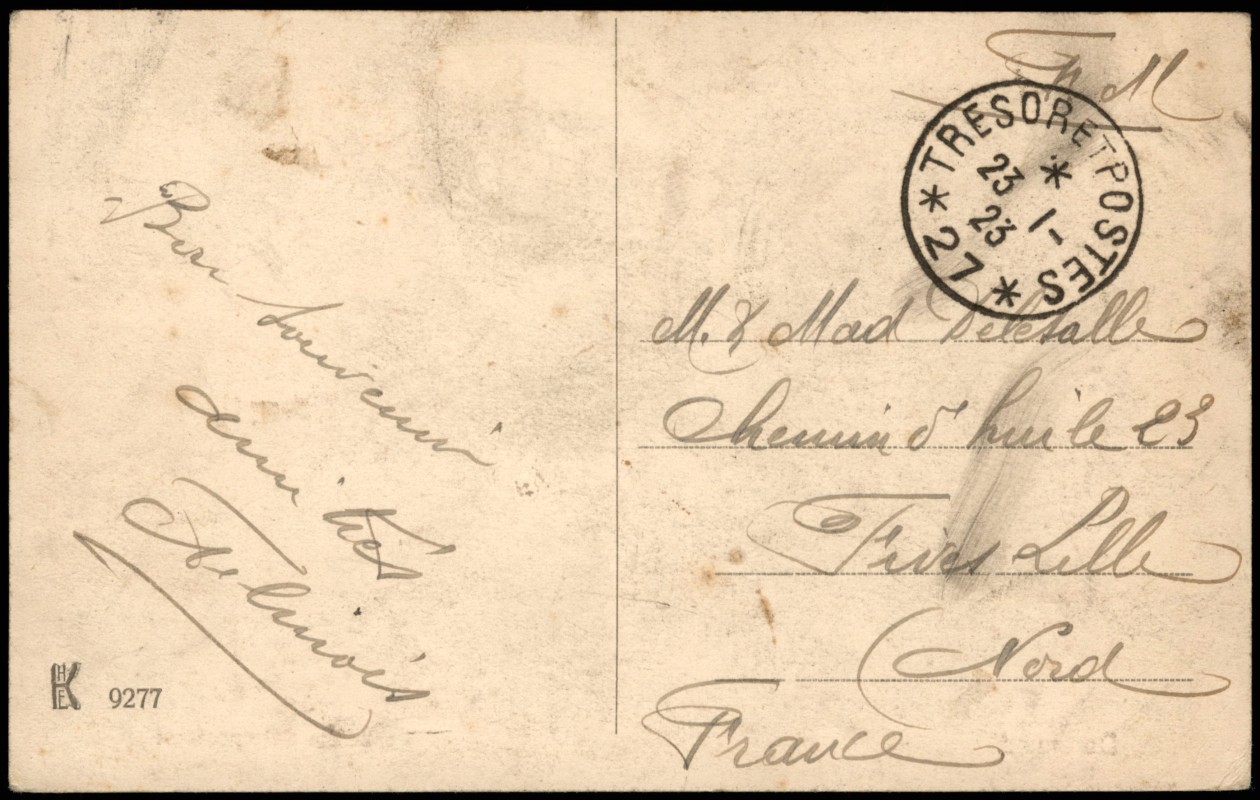 F. M
* TRESOR ET POSTES * 27
23 * 1 - 23
Bon Souvenir
amitiés
M. & Mad Delesalle
Chemin d'huile 23
Fives Lille
Nord
France
HKE 9277